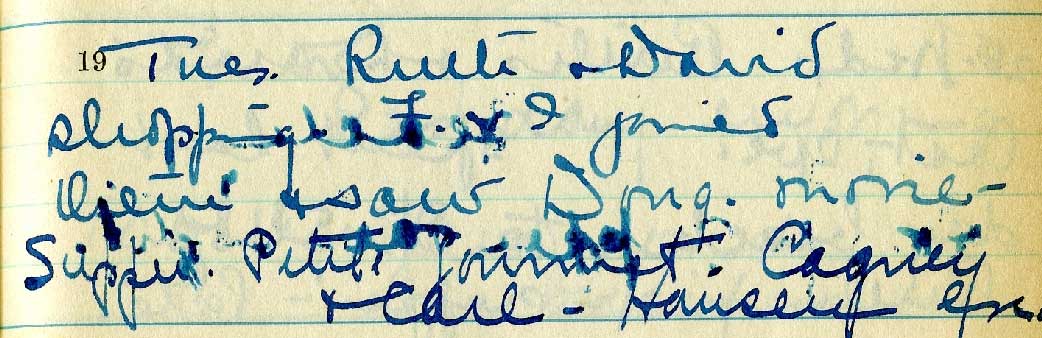 19 Tues. Ruth & David
shopping & F. & I joined
them & saw Doug. movie -
Supper. Petit Gourmet. Cagney
& Carl - Hansen